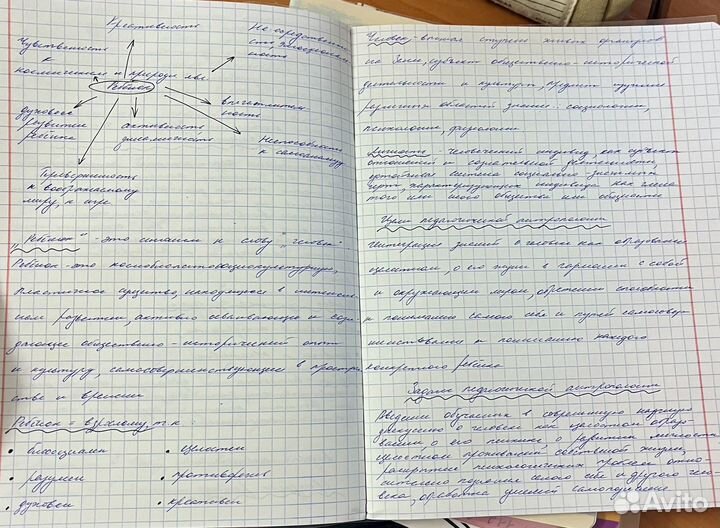 Креативность
Чувственность
к
космическим и природн. яв.
Непосредственность,
эмоциональность
Ребёнок
духовое
развитие
ребёнка
активность
динамичность
впечатлитель-
ность
Неспособность
к самоанализу
Приверженность
к воображаемому
миру, к игре
„Ребёнок" - это синоним к слову „человек"
Ребёнок - это космобиопсихосоциокультурное,
пластическое существо, находящееся в интенсив-
ном развитии, активно осваивающее и соз-
дающее общественно-исторический опыт
и культуру, самосовершенствующееся в простран-
стве и времени
Ребёнок = взрослому, т.к
• биосоциален
• разумен
• духовен
• целостен
• противоречив
• креативен
Человек - высшая ступень живых организмов
на Земле, субъект общественно-исторической
деятельности и культуры, предмет изучения
различных областей знания: социологии,
психологии, физиологии
Личность - человеческий индивид, как субъект
отношений и сознательной деятельности,
устойчивая система социально значимых
черт, характеризующих индивида как члена
того или иного общества или общности
Цели педагогической антропологии
Интеграция знаний о человеке как образовании
целостном, о его жизни в гармонии с собой
и окружающим миром, обретении способности
к пониманию самого себя и путей самосовер-
шенствования к пониманию каждого
конкретного ребёнка
Задачи педагогической антропологии
Введение обучаемых в современную научную
дискуссию о человеке как целостном образо-
вании о его психике о развитии личности
целостном проживании собственной жизни,
психологических проблем отно-
сительно познания самого себя и другого чело-
века, отработка умений самопознания
Avito